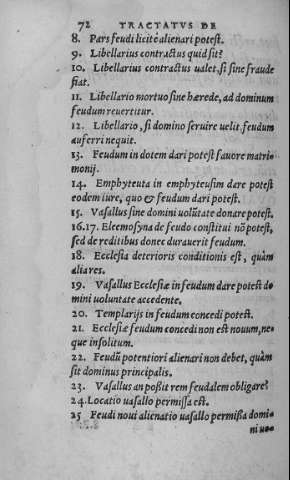 72 TRACTATVS DE
8. Pars feudi licitè alienari potest.
9. Libellarius contractus quid sit?
10. Libellarius contractus ualet, si sine fraude
fiat.
11. Libellario mortuo sine hærede, ad dominum
feudum reuertitur.
12. Libellario, si domino seruire uelit, feudum
auferri nequit.
13. Feudum in dotem dari potest fauore matri-
monij.
14. Emphyteuta in emphyteusim dare potest
eodem iure, quo & feudum dari potest.
15. Vasallus sine domini uolūtate donare potest.
16.17. Eleemosyna de feudo constitui nō potest,
sed de reditibus donec durauerit feudum.
18. Ecclesia deterioris conditionis est, quàm
aliæ res.
19. Vasallus Ecclesiæ in feudum dare potest do-
mini uoluntate accedente.
20. Templarijs in feudum concedi potest.
21. Ecclesiæ feudum concedi non est nouum, ne-
que insolitum.
22. Feudū potentiori alienari non debet, quàm
sit dominus principalis.
23. Vasallus an possit rem feudalem obligare?
24. Locatio uasallo permissa est.
25 Feudi noui alienatio uasallo permissa domi-
ni uo-